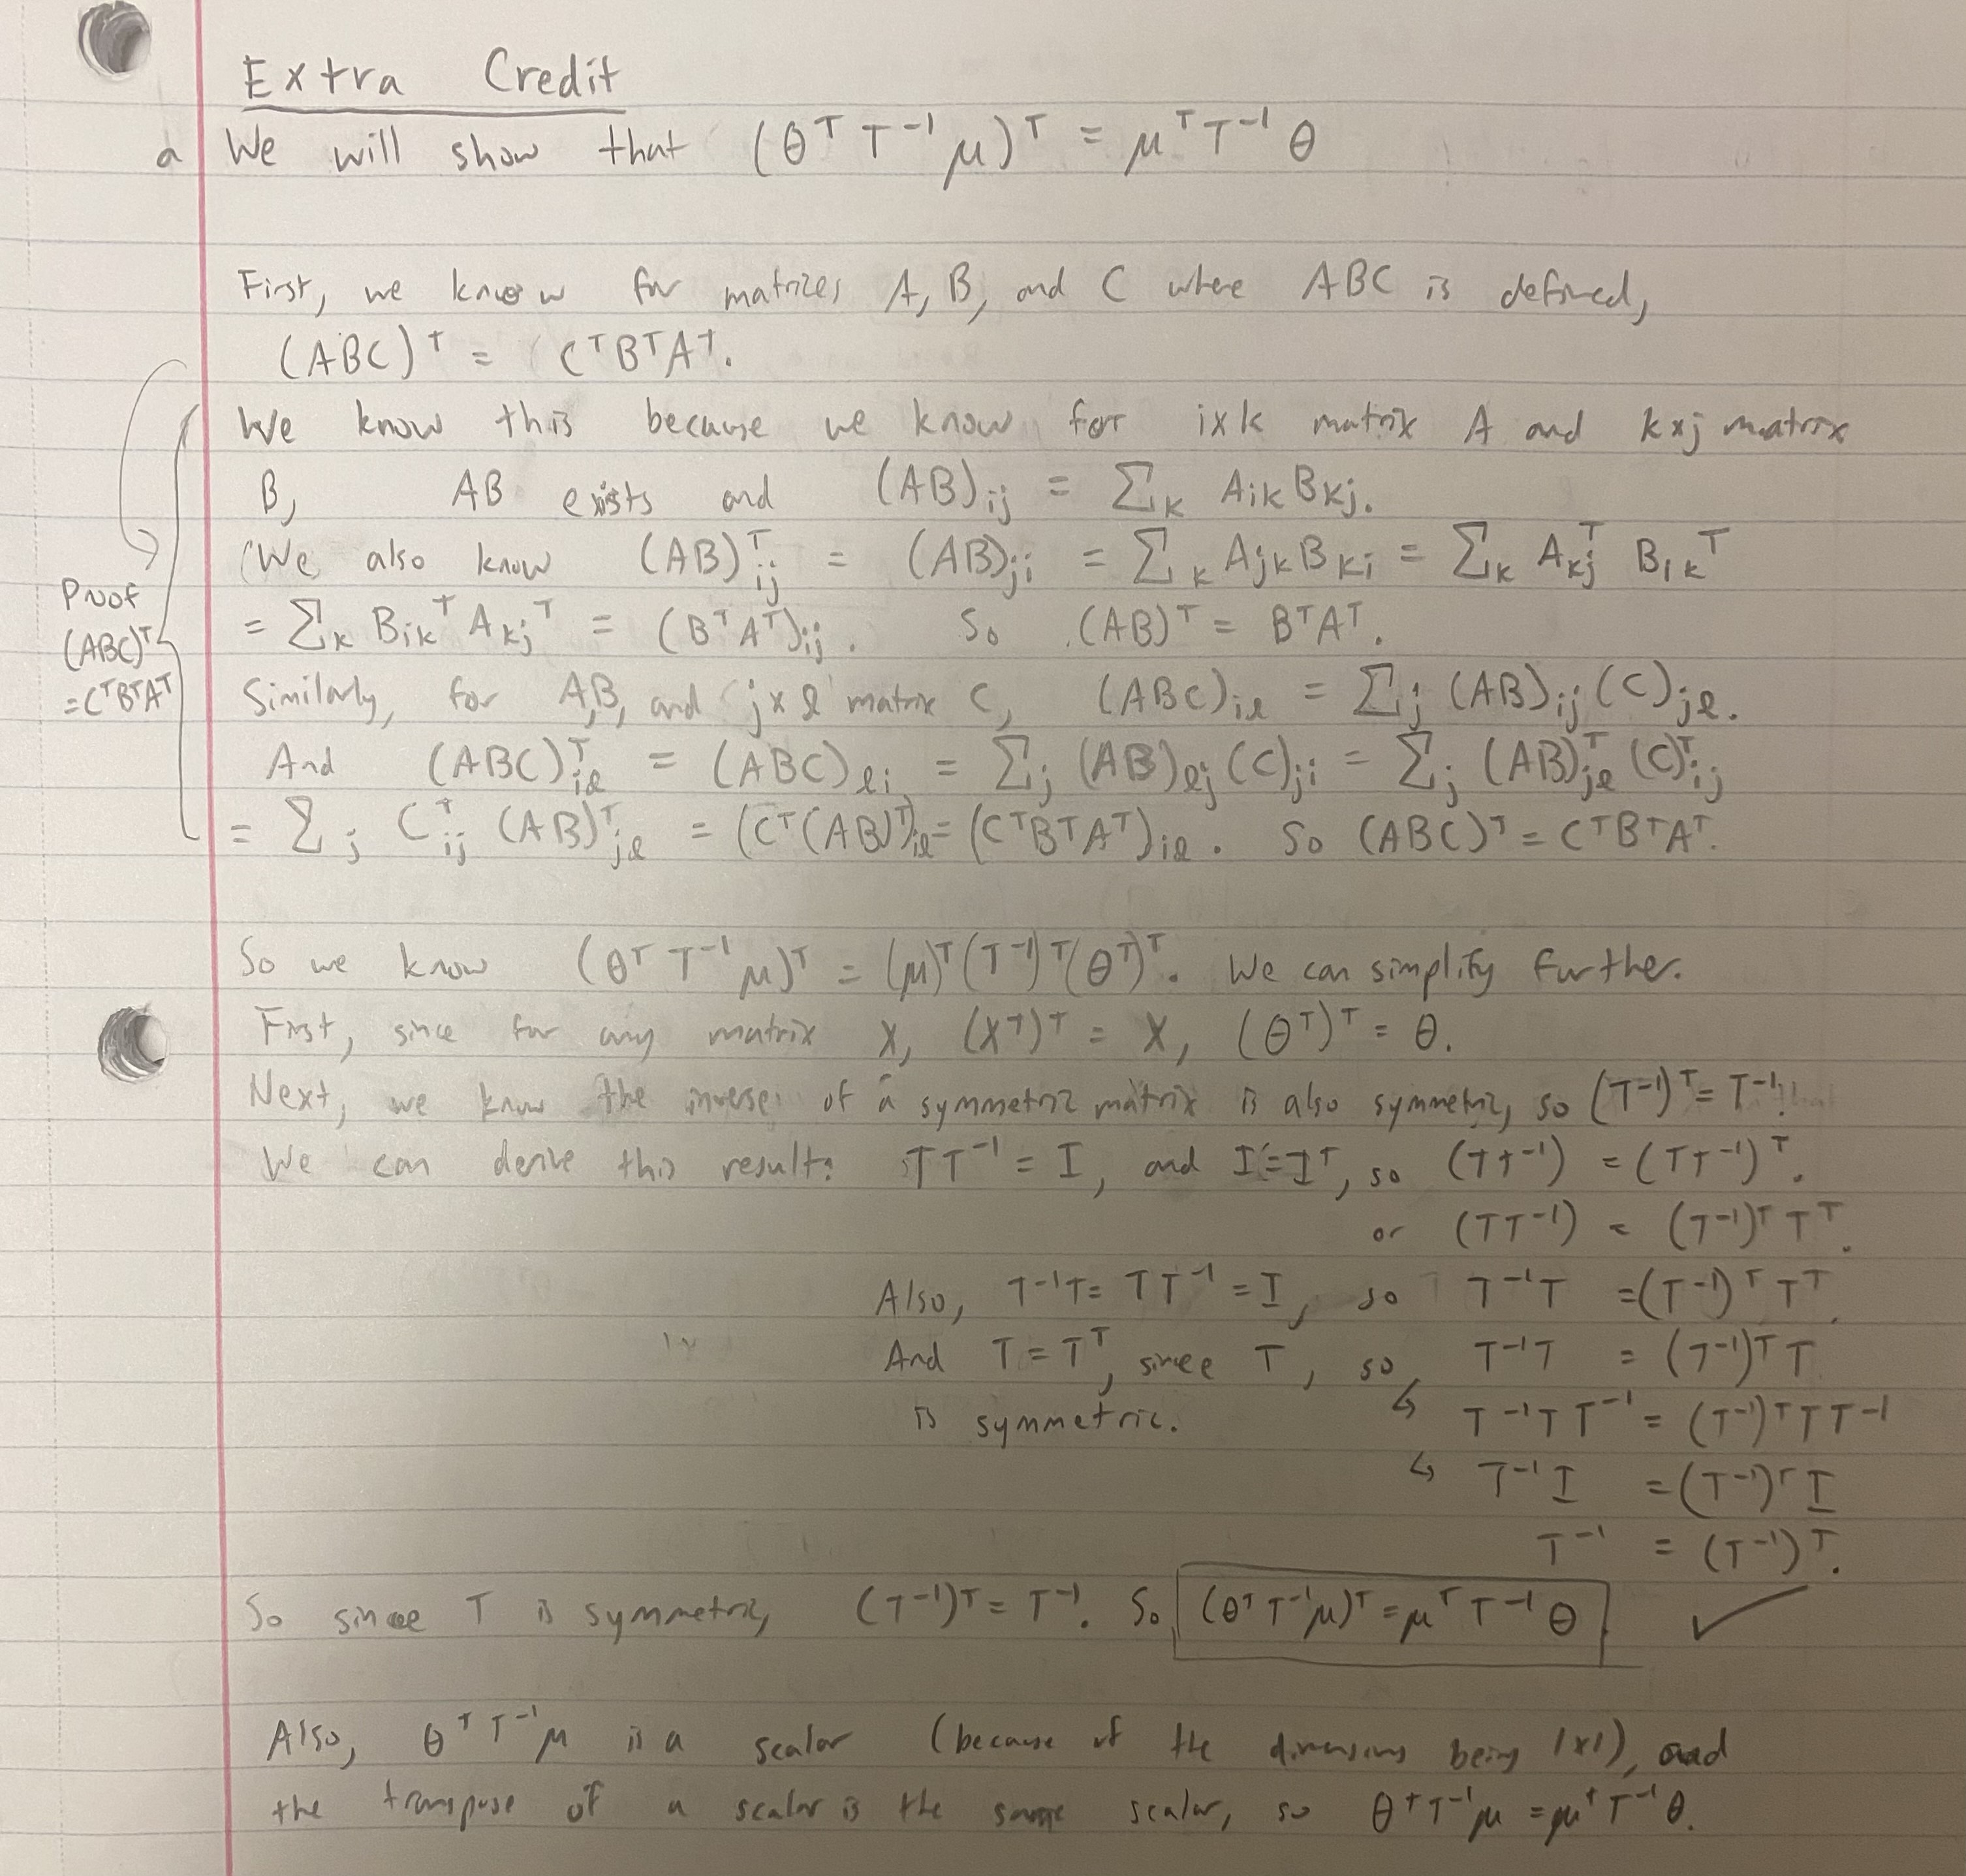 Extra Credit
a We will show that (θᵀ T⁻¹ μ)ᵀ = μᵀ T⁻¹ θ
First, we know for matrices A, B, and C where ABC is defined,
(ABC)ᵀ = CᵀBᵀAᵀ.
We know this because we know for ixk matrix A and kxj matrix
B, AB exists and (AB)ij = Σk Aik Bkj.
We also know (AB)ᵀij = (AB)ji = Σk Ajk Bki = Σk Akjᵀ Bikᵀ
= Σk Bikᵀ Akjᵀ = (BᵀAᵀ)ij. So (AB)ᵀ = BᵀAᵀ.
Proof
(ABC)ᵀ
=CᵀBᵀAᵀ
Similarly, for A,B, and jxℓ matrix C, (ABC)iℓ = Σj (AB)ij (C)jℓ.
And (ABC)ᵀiℓ = (ABC)ℓi = Σj (AB)ℓj (C)ji = Σj (AB)ᵀjℓ (C)ᵀij
= Σj Cᵀij (AB)ᵀjℓ = (Cᵀ(AB)ᵀ)iℓ = (CᵀBᵀAᵀ)iℓ. So (ABC)ᵀ = CᵀBᵀAᵀ.
So we know (θᵀ T⁻¹ μ)ᵀ = (μ)ᵀ(T⁻¹)ᵀ(θᵀ)ᵀ. We can simplify further.
First, since for any matrix X, (Xᵀ)ᵀ = X, (θᵀ)ᵀ = θ.
Next, we know the inverse of a symmetric matrix is also symmetric, so (T⁻¹)ᵀ = T⁻¹.
We can derive this result: TT⁻¹ = I, and I = Iᵀ, so (TT⁻¹) = (TT⁻¹)ᵀ.
or (TT⁻¹) = (T⁻¹)ᵀ Tᵀ.
Also, T⁻¹T = TT⁻¹ = I, so T⁻¹T = (T⁻¹)ᵀ Tᵀ.
And T = Tᵀ, since T, so T⁻¹T = (T⁻¹)ᵀ T
is symmetric. ↳ T⁻¹TT⁻¹ = (T⁻¹)ᵀTT⁻¹
↳ T⁻¹I = (T⁻¹)ᵀI
T⁻¹ = (T⁻¹)ᵀ.
So since T is symmetric, (T⁻¹)ᵀ = T⁻¹. So (θᵀT⁻¹μ)ᵀ = μᵀT⁻¹θ. ✓
Also, θᵀT⁻¹μ is a scalar (because of the dimensions being 1x1), and
the transpose of a scalar is the same scalar, so θᵀT⁻¹μ = μᵀT⁻¹θ.